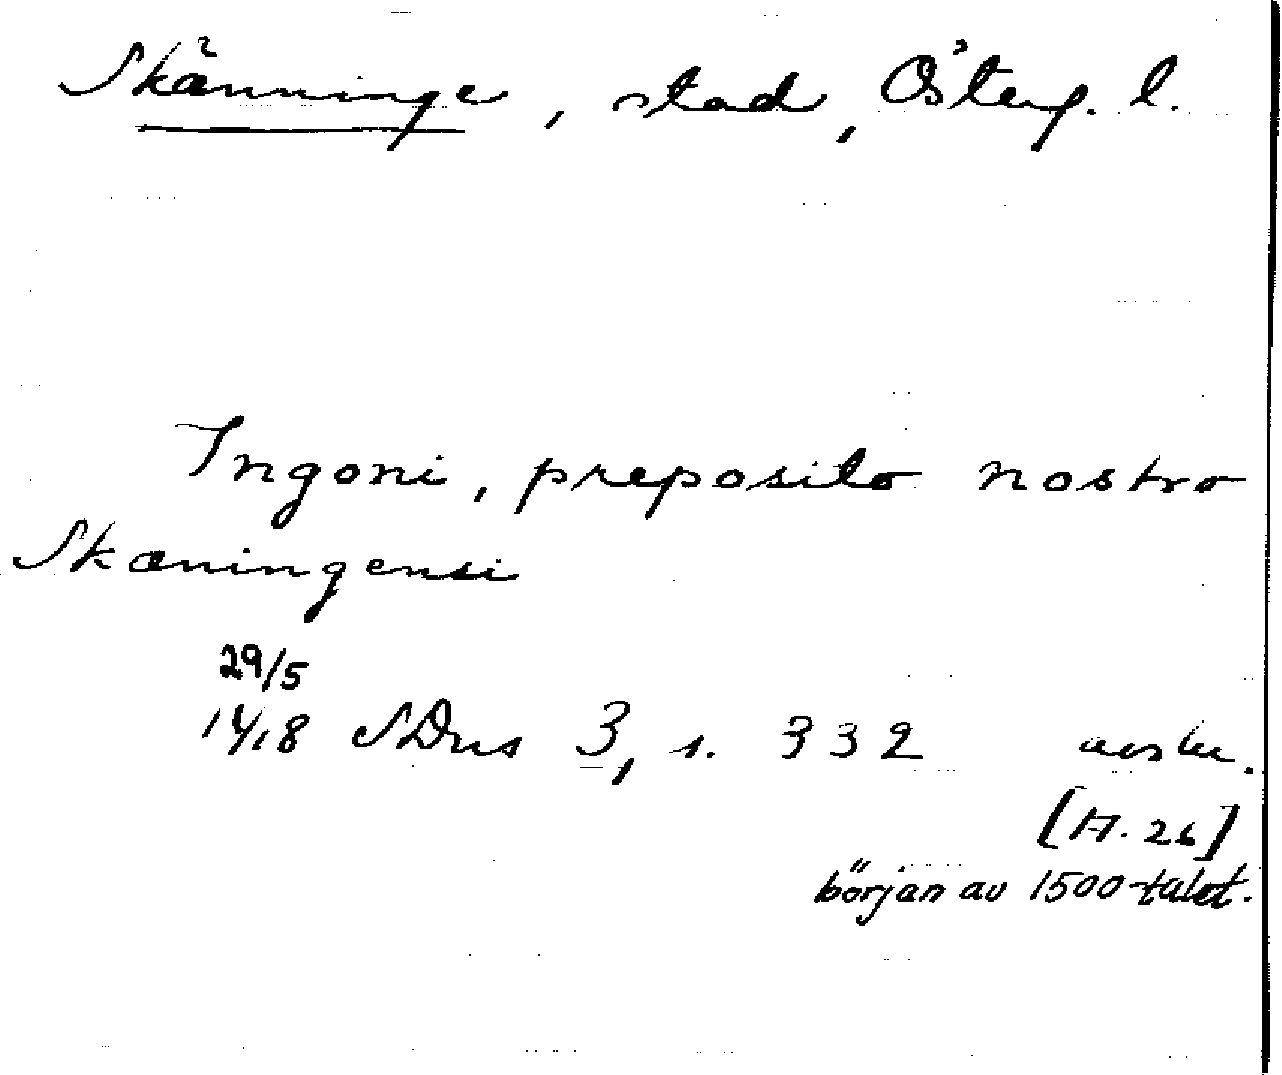 Skänninge, stad, Österg. l.
Ingoni, preposito nostro
Skæningensi
29/5
1418 SDns 3, s. 332 avskr.
[A. 26]
början av 1500-talet.